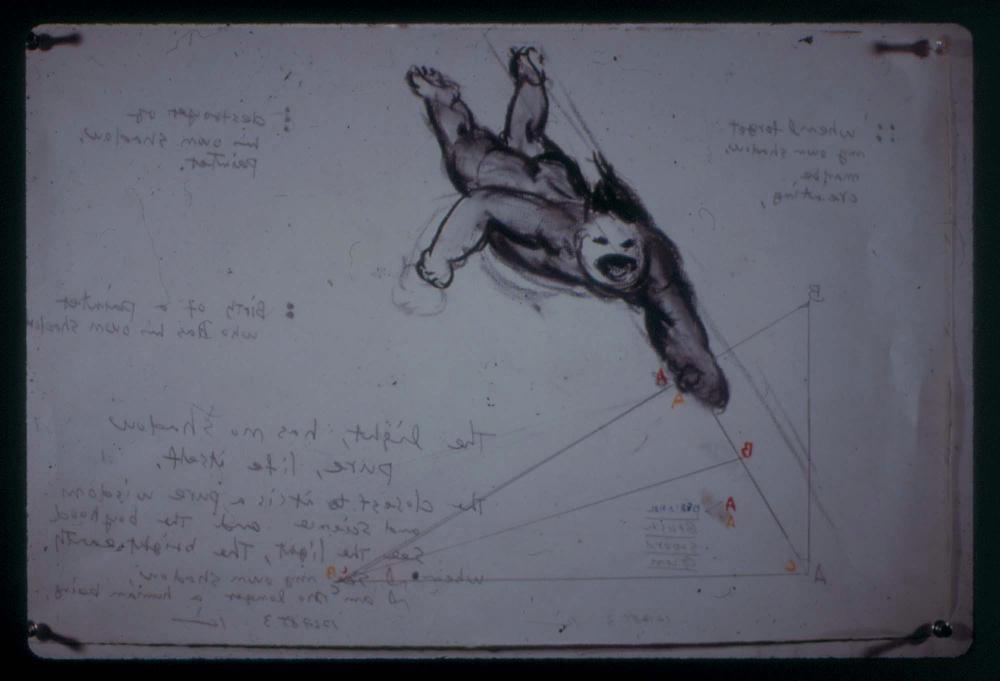 when I forget
my own shadow,
maybe
creating,
destroyer of
his own shadow,
painter.
Birth of a painter
who Has his own shadow
B
A
A
B
A
A
C
A
C
The light, has no shadow
pure, life itself.
The closest to it is a pure wisdom
and science and the boyhood
see the light, The bright
when I see my own shadow,
I am no longer a human being